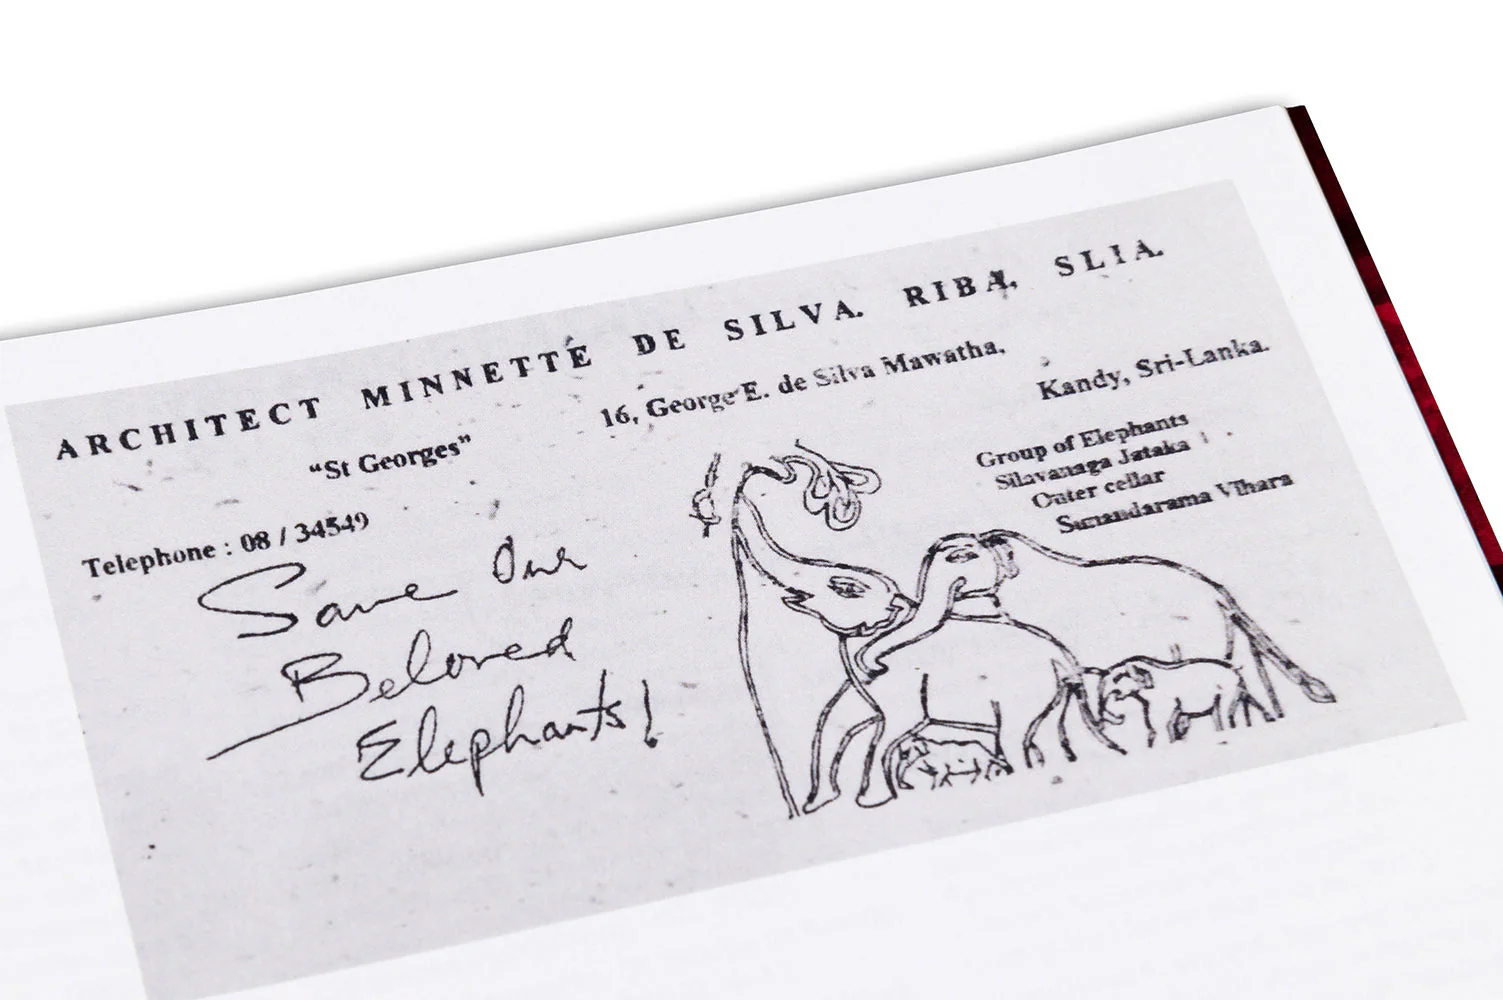 ARCHITECT MINNETTE DE SILVA. RIBA, SLIA.
"St Georges"
16, George E. de Silva Mawatha,
Kandy, Sri-Lanka.
Telephone : 08 / 34549
Group of Elephants
Silavanaga Jataka
Outer cellar
Sunandarama Vihara
Save Our
Beloved
Elephants!